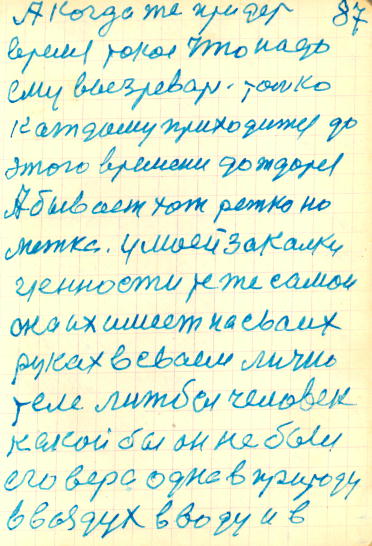 А когда же придер 87
время токое что надо
ему высзревар. толко
каждому приходитея до
этого времени дождатея
А бывает хот ретко но
метко. у моей закалки
ценности те же самои
она их имеет на сваих
руках в сваем лично
теле литбы человек
какой бы он не был
его вера одна в природу
в воздух в воду и в